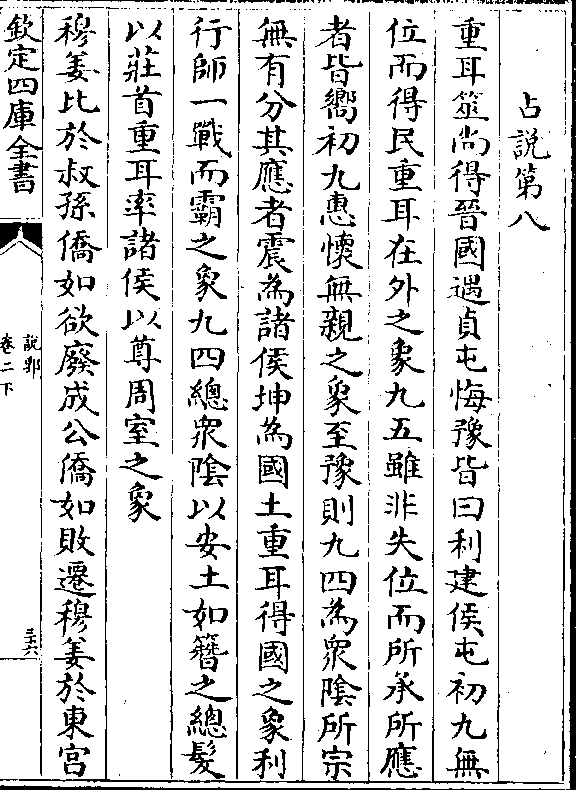 占說第八
重耳筮尚得晉國遇貞屯悔豫皆曰利建侯屯初九無
位而得民重耳在外之象九五雖非失位而所承所應
者皆嚮初九惠懷無親之象至豫則九四為衆陰所宗
無有分其應者震為諸侯坤為國土重耳得國之象利
行師一戰而霸之象九四總衆陰以安土如簪之總髮
以莊首重耳率諸侯以尊周室之象
穆姜比於叔孫僑如欲廢成公僑如敗遷穆姜於東宮
欽定四庫全書
說郛
卷二下
三六